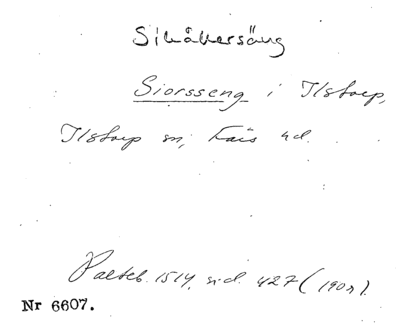 Sikåkersäng
Siorsseng i Ilstorp,
Ilstorp sn, Färs hd.
Palteb. 1514, sid. 427 (190r).
Nr 6607.